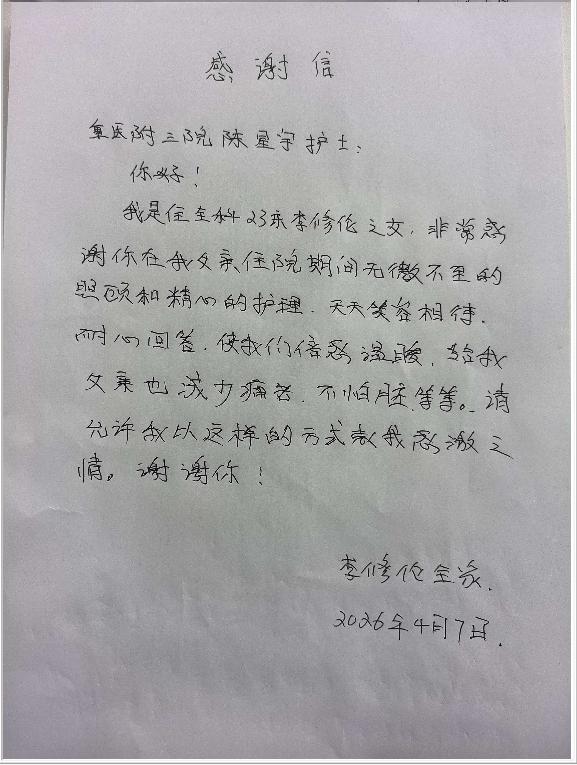 感谢信
重医附三院陈星宇护士:
你好!
我是住全科23床李修伦之女,非常感
谢你在我父亲住院期间无微不至的
照顾和精心的护理.天天笑容相待.
耐心回答.使我们倍感温暖,给我
父亲也减少痛苦.不怕脏等等。请
允许我以这样的方式表我感激之
情。谢谢你!
李修伦全家.
2026年4月7日.